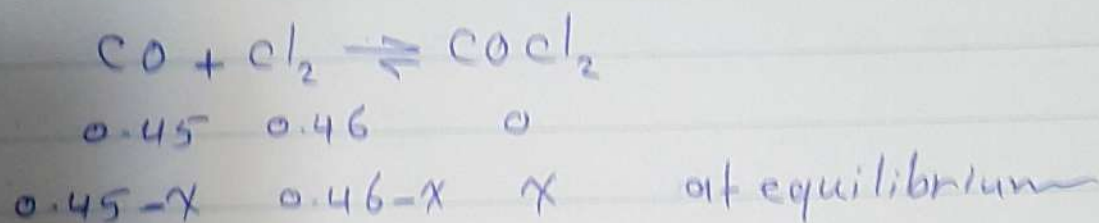 CO + Cl₂ ⇌ COCl₂
0.45 0.46 0
0.45-x 0.46-x x at equilibrium